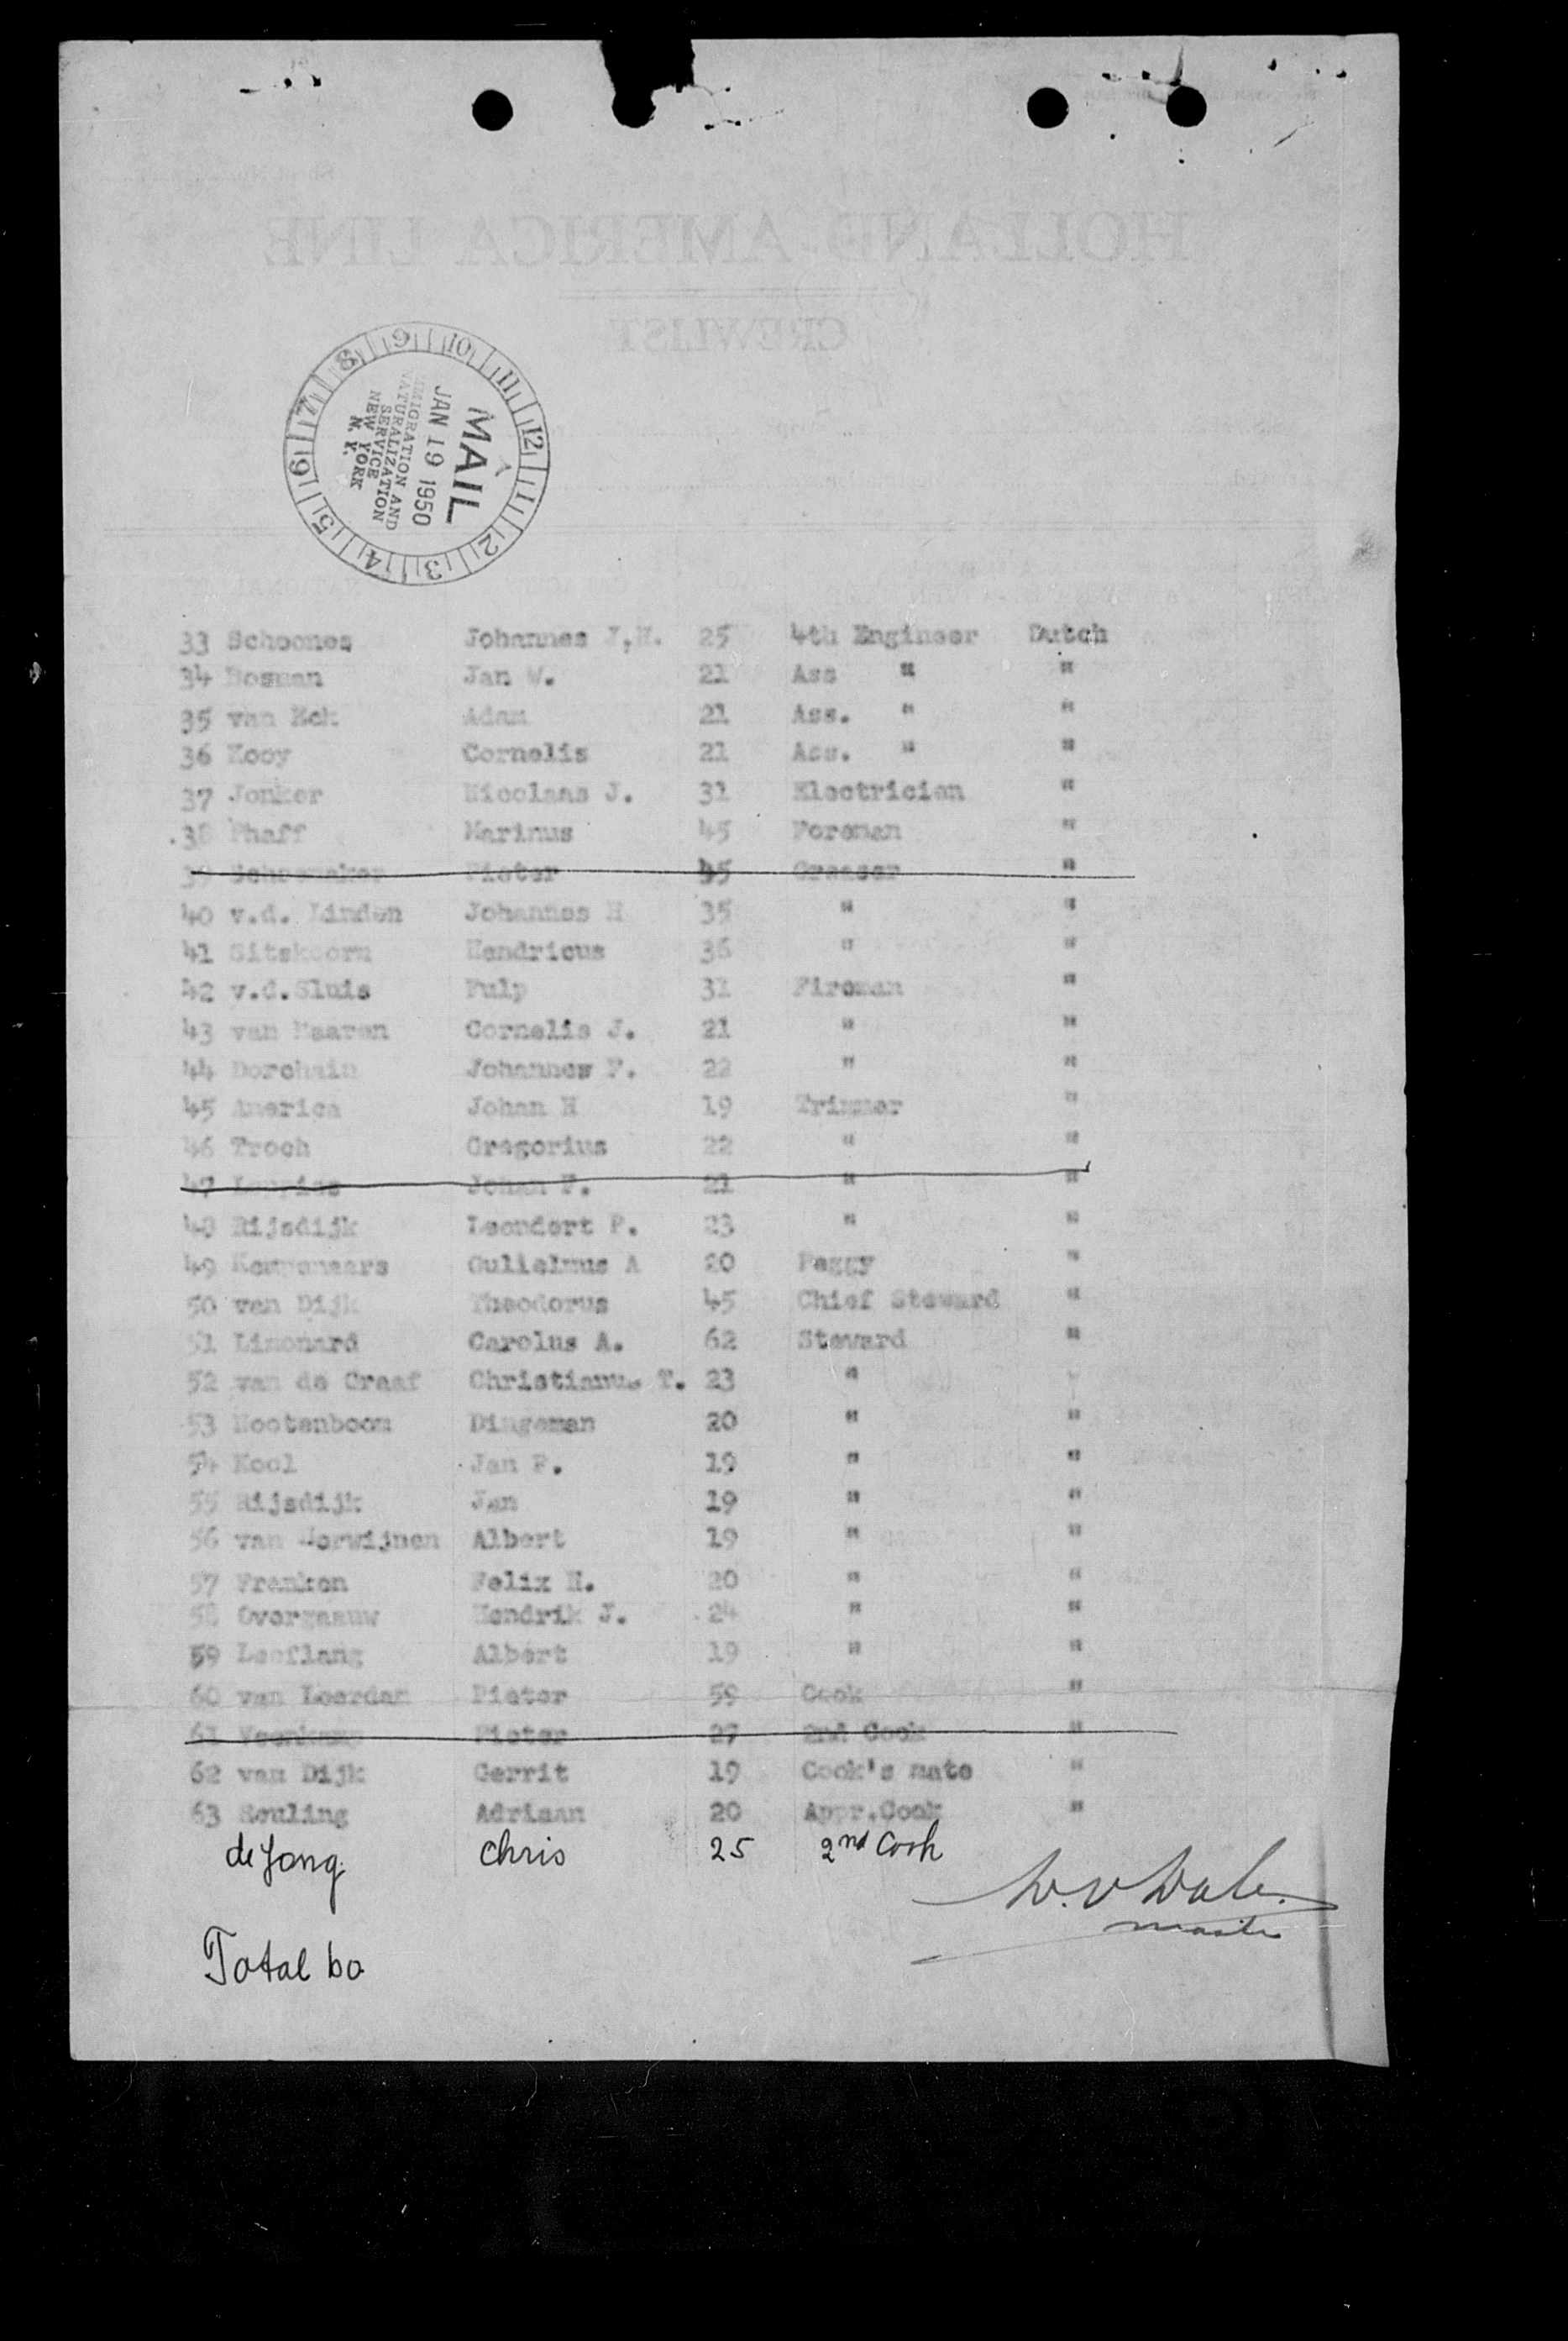 HOLLAND-AMERICA LINE
CREWLIST
MAIL
JAN 19 1950
IMMIGRATION AND
NATURALIZATION
SERVICE
NEW YORK
N. Y.
33 Schoones Johannes J.H. 25 4th Engineer Dutch
34 Bosman Jan W. 21 Ass " "
35 van Eck Adam 21 Ass. " "
36 Kooy Cornelis 21 Ass. " "
37 Jonker Nicolaas J. 31 Electrician "
38 Phaff Marinus 45 Foreman "
39 Schoemaker Pieter 45 Greaser "
40 v.d. Linden Johannes H 35 " "
41 Sitskoorn Hendricus 36 " "
42 v.d.Sluis Fulp 31 Fireman "
43 van Haaren Cornelis J. 21 " "
44 Dorchain Johannes F. 22 " "
45 America Johan H 19 Trimmer "
46 Troch Gregorius 22 " "
47 Johan F. 21 " "
48 Rijsdijk Leendert P. 23 " "
49 Gulielmus A 20 Peggy "
50 van Dijk Theodorus 45 Chief Steward "
51 Limonard Carolus A. 62 Steward "
52 van de Graaf Christianus T. 23 " "
53 Nootenboom Dingeman 20 " "
54 Kool Jan P. 19 " "
55 Rijsdijk Jan 19 " "
56 van Albert 19 " "
57 Franken Felix H. 20 " "
58 Overgaauw Hendrik J. 24 " "
59 Leeflang Albert 19 " "
60 van Leerdam Pieter 59 Cook "
61 Veenkamp Pieter 27 2nd Cook "
62 van Dijk Gerrit 19 Cook's mate "
63 Reuling Adriaan 20 Appr.Cook "
de Jong Chris 25 2nd Cook
W. v Dale.
master
Total 60